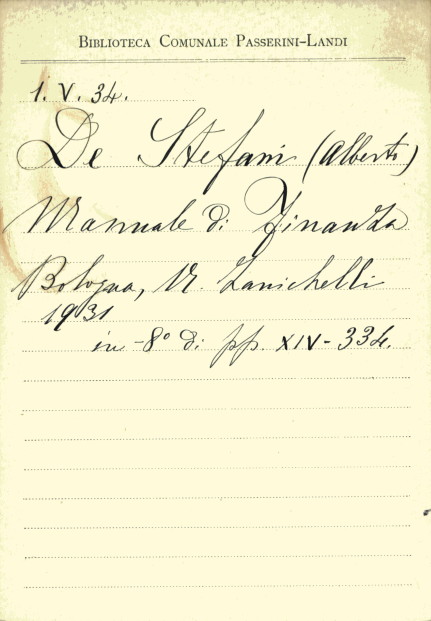 BIBLIOTECA COMUNALE PASSERINI-LANDI
1. V. 34.
De Stefani (Alberto)
Manuale di Finanza
Bologna, N. Zanichelli
1931
in-8° di pp. XIV-334.